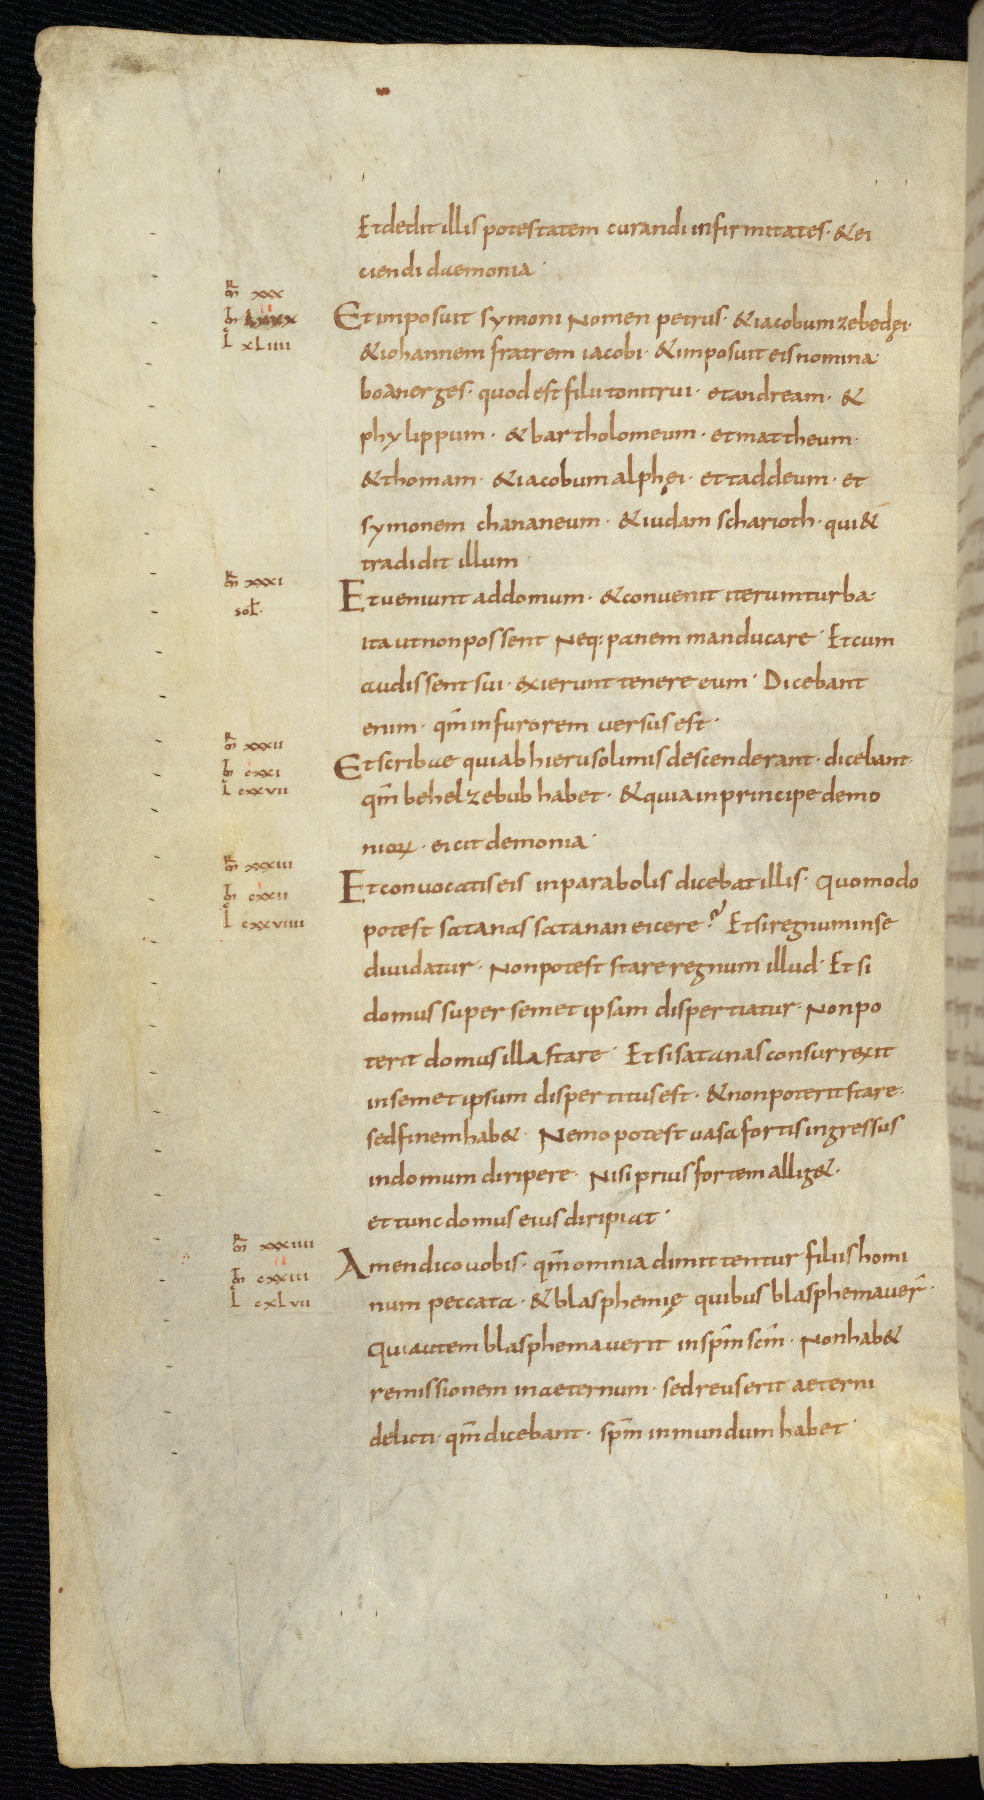 Et dedit illis potestatem curandi infirmitates · & ei
ciendi daemonia ·
R
m̄ xxx
m̄t
L xLIIII
Et imposuit symoni Nomen petrus · & iacobum zebedęi ·
& iohannem fratrem iacobi · & imposuit eis nomina ·
boanerges · quod est filii tonitrui · et andream · &
phylippum · & bartholomeum · et mattheum ·
& thomam · & iacobum alphęi · et taddeum · et
symonem chananeum · & iudam scharioth · qui &
tradidit illum ·
R
m̄ xxxI
soL̄ ·
Et ueniunt ad domum · & convenit iterum turba ·
ita ut non possent Neq; panem manducare · Et cum
audissent sui · exierunt tenere eum · Dicebant
enim · qm̄ in furorem versus est ·
R
m̄ xxxII
m̄t cxxI
L cxxvII
Et scribae qui ab hierusolimis descenderant · dicebant ·
qm̄ behelzebub habet · & quia in principe demo
nioꝝ · eicit demonia ·
R
m̄ xxxIII
m̄t cxxII
L cxxvIIII
Et convocatis eis in parabolis dicebat illis · Quomodo
potest satanas satanan eicere ? Et si regnum in se
diuidatur · Non potest stare regnum illud · Et si
domus super semet ipsam dispertiatur · Non po
terit domus illa stare · Et si satanas consurrexit
in semet ipsum dispertitus est · & non poterit stare ·
sed finem hab& · Nemo potest uasa fortis ingressus
in domum diripere · Nisi prius fortem allig& ·
et tunc domus eius diripiat ·
R
m̄ xxxIIII
m̄t cxxIII
L cxLvII
Amen dico uobis · qm̄ omnia dimittentur filiis homi
num peccata · & blasphemię quibus blasphemauer̄ ·
Qui autem blasphemauerit in sp̄m sc̄m · Non hab&
remissionem in aeternum · sed reus erit aeterni
delicti · qm̄ dicebant · sp̄m inmundum habet ·